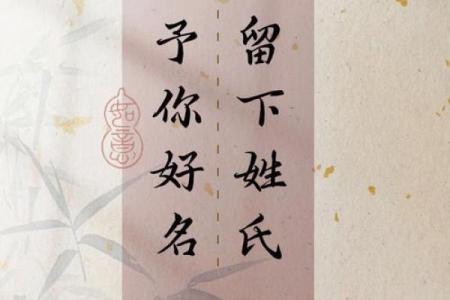 留下姓氏
予你好名
如意